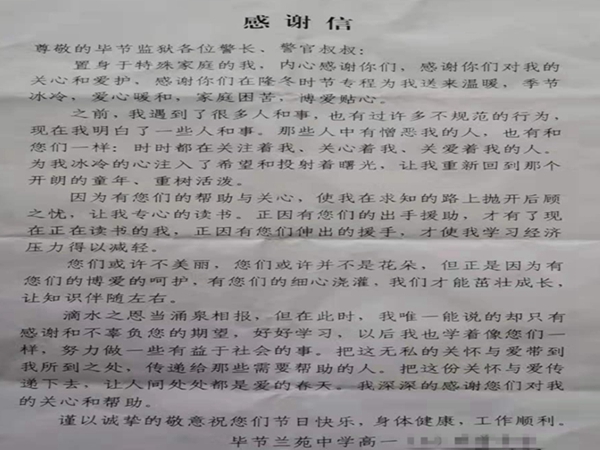 感谢信
尊敬的毕节监狱各位警长、警官叔叔:
置身于特殊家庭的我，内心感谢你们，感谢你们对我的
关心和爱护、感谢你们在隆冬时节专程为我送来温暖，季节
冰冷，爱心暖和，家庭困苦，博爱贴心。
之前，我遇到了很多人和事，也有过许多不规范的行为，
现在我明白了一些人和事。那些人中有憎恶我的人，也有和
您们一样：时时都在关注着我、关心着我、关爱着我的人。
为我冰冷的心注入了希望和投射着曙光，让我重新回到那个
开朗的童年、重树活泼。
因为有您们的帮助与关心，使我在求知的路上抛开后顾
之忧，让我专心的读书。正因有您们的出手援助，才有了现
在正在读书的我，正因有您们伸出的援手，才使我学习经济
压力得以减轻。
您们或许不美丽，您们或许并不是花朵，但正是因为有
您们的博爱的呵护，有您们的细心浇灌，我们才能茁壮成长，
让知识伴随左右。
滴水之恩当涌泉相报，但在此时，我唯一能说的却只有
感谢和不辜负您的期望，好好学习，以后我也学着像您们一
样，努力做一些有益于社会的事。把这无私的关怀与爱带到
我所到之处，传递给那些需要帮助的人。把这份关怀与爱传
递下去，让人间处处都是爱的春天。我深深的感谢您们对我
的关心和帮助。
谨以诚挚的敬意祝您们节日快乐，身体健康，工作顺利。
毕节兰苑中学高一